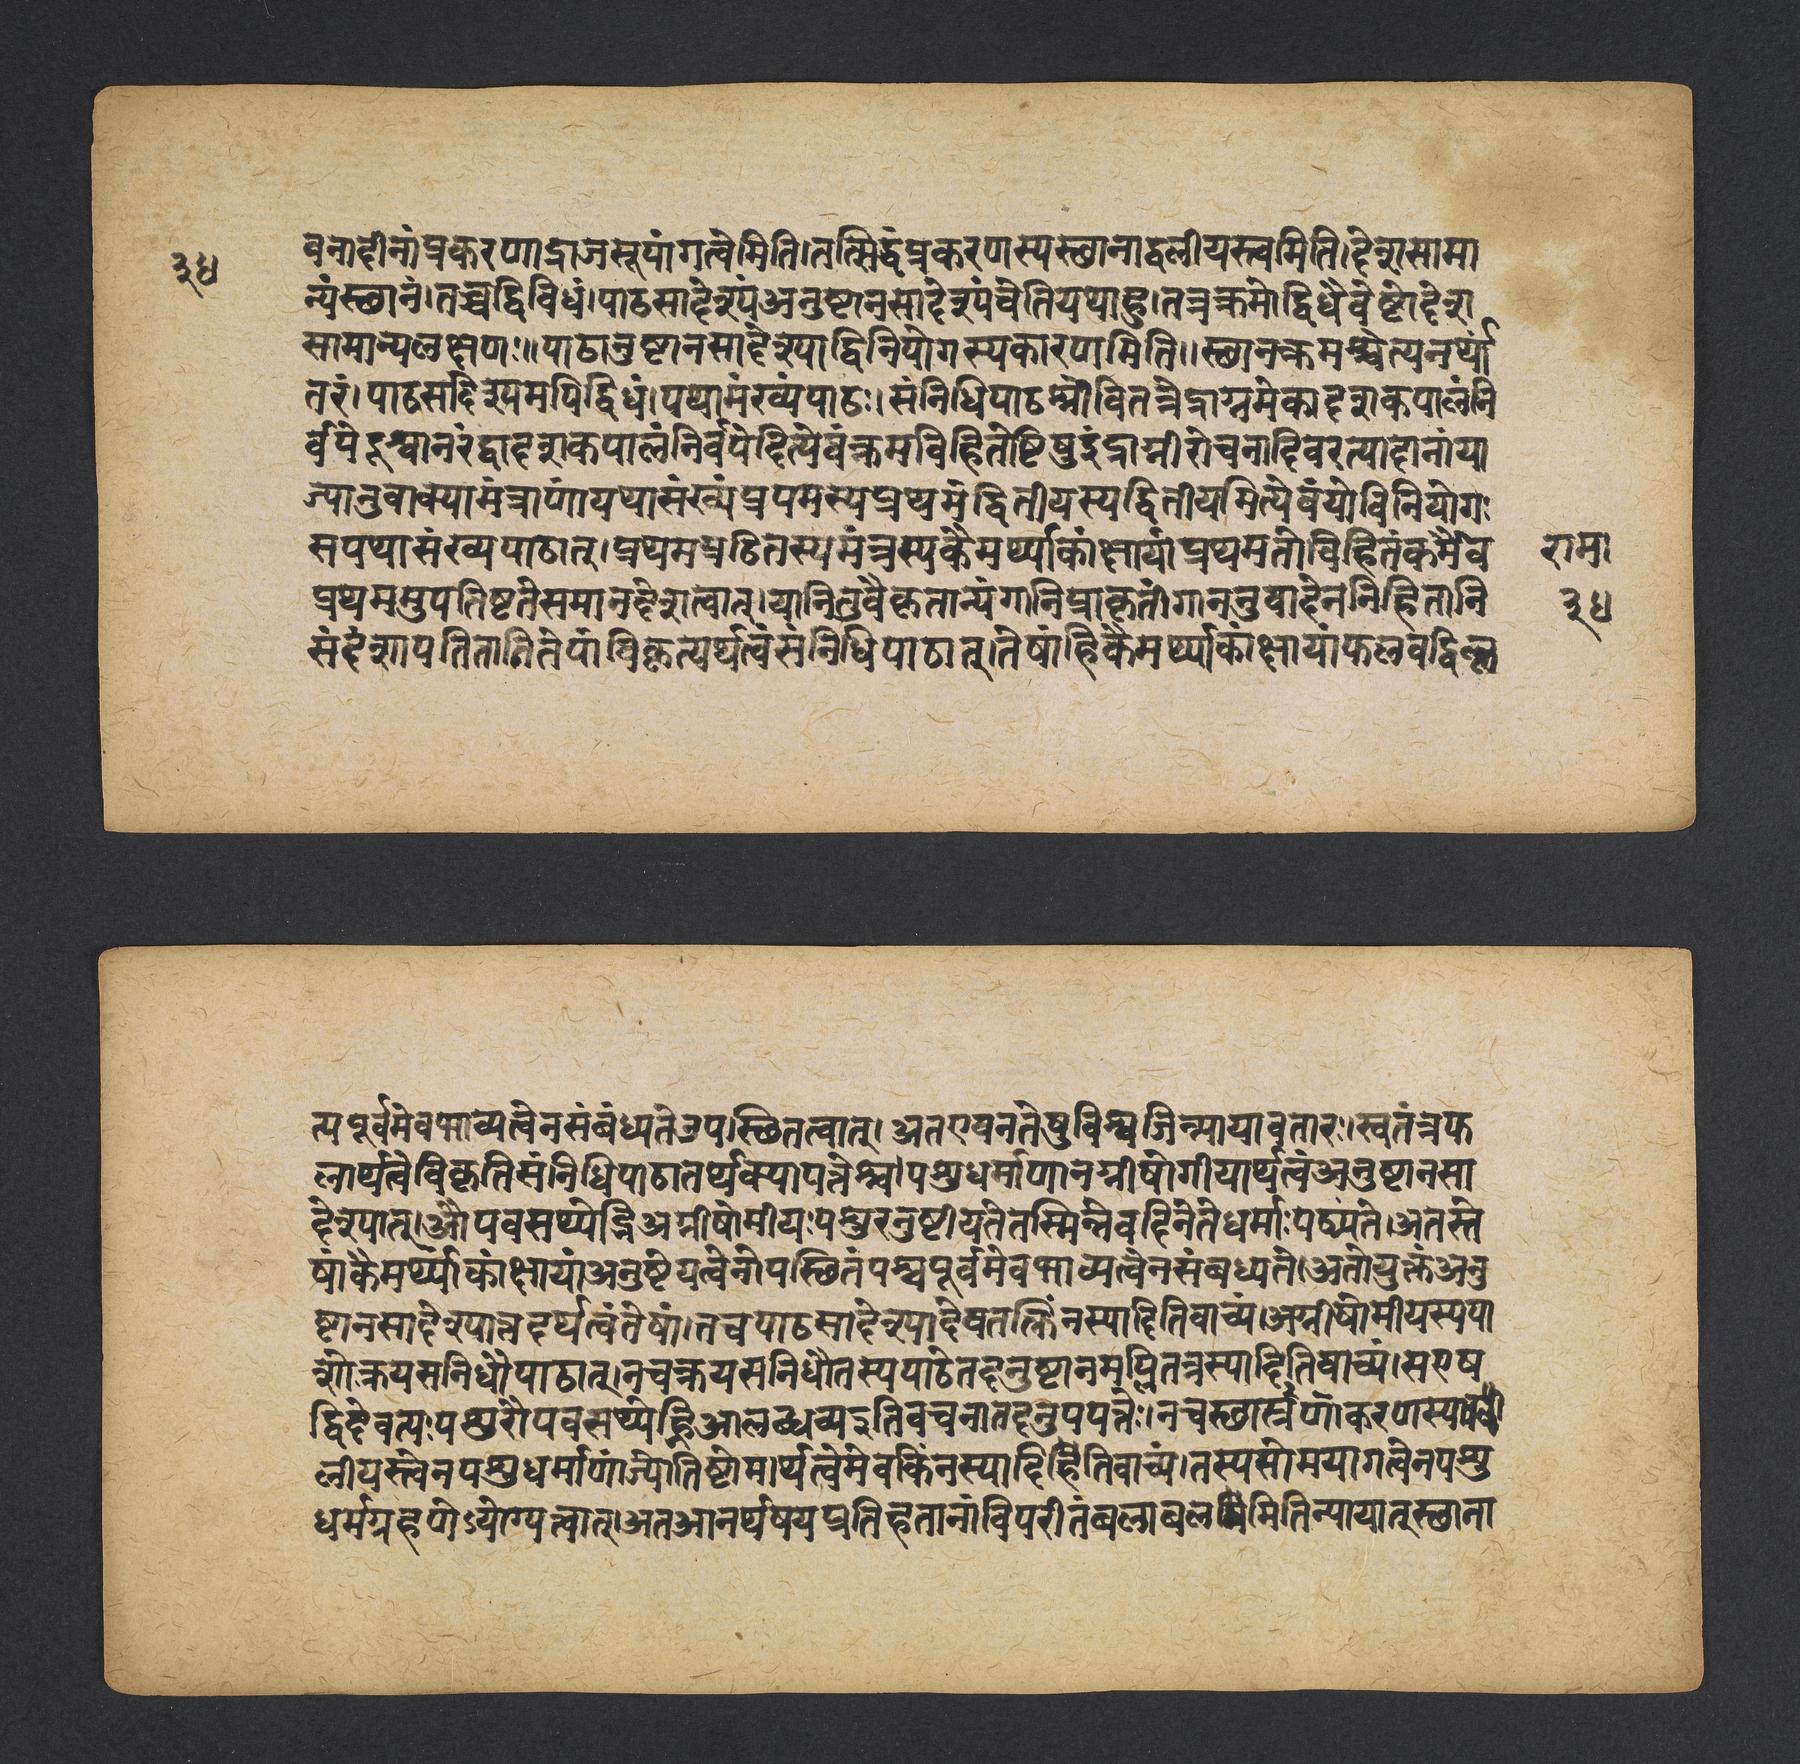 ३४
वनादीनांप्रकरणाद्राजसूयांगत्वमिति।तत्सिद्धंप्रकरणस्यस्थानाद्वलीयस्त्वमिति।देशसामा
न्यंस्थानं।तच्चद्विविधं।पाठसादेश्यंअनुष्टानसादेश्यंचेतियथाहु।तत्रक्रमोद्विधैवेष्टोदेश
सामान्यलक्षणः॥पाठानुष्टानसादेश्याद्विनियोगस्यकारणमिति॥स्थानक्रमश्चेत्यनर्थां
तरं।पाठसादेश्यमपिद्विधं।यथासंख्यंपाठः।संनिधिपाठश्चेतितत्रैद्राग्नमेकादशकपालंनि
र्वपेद्वैश्वानरंद्वादशकपालंनिर्वपेदित्येवंक्रमविहितेष्टिषुइंद्राग्नीरोचनादिवइत्यादीनांया
ज्यानुवाक्यामंत्राणांयथासंख्यंप्रथमस्यप्रथमंद्वितीयस्यद्वितीयमित्येवंयोविनियोगः
सयथासंख्यपाठात्।प्रथमप्रठितस्यमंत्रस्यकैमर्थ्याकांक्षायांप्रथमतोविहितंकर्मैव
रामा
प्रथममुपतिष्टतेसमानदेशत्वात्।यानितुवैकृतान्यंगानिप्राकृतांगाननुवादेननिहितानि
३४
संदंशापतितानितेषांविकृत्यर्थत्वंसनिधिपाठात्।तेषांहिकैमर्थ्याकांक्षायांफलवद्विकृ
त्यपूर्वमेवभाव्यत्वेनसंबंध्यतेउपस्थितत्वात्।अतएवनतेषुविश्वजिन्यायावतारः।स्वतंत्रफ
लार्थत्वेविकृतिसंनिधिपाठानर्थक्यापत्तेश्च।पशुधर्माणानग्नीषोगीयार्थत्वंअनुष्टानसा
देश्यात्।औपवसथ्येह्निअग्नीषोमीयःपशुरनुष्टीयतेतस्मिन्नेवदिनेतेधर्माःपठ्यंते।अतस्ते
षांकैमर्थ्याकांक्षायांअनुष्टेयत्वेनोपस्थितंपश्वपूर्वमेवभाव्यत्वेनसंबध्यते।अतोयुक्तंअनु
ष्टानसादेश्यात्तदर्थत्वंतेषां।तचपाठसादेश्यादेवतत्किंनस्यादितिवाच्यं।अग्नीषोमीयस्यपा
शोःक्रयसनिधौपाठात्।नचक्रयसनिधौतस्यपाठेतदनुष्टानमपितत्रस्यादितिवाच्यं।सएष
द्विदेवत्यःपशुरौपवसथ्येह्निआलब्धव्यइतिवचनातदनुपपत्तेः।नचस्थानात्प्रकरणस्यब
लीयस्त्वेनपशुधर्माणांज्योतिष्टोमार्थत्वमेवकिंनस्यादितिवाच्यं।तस्यसोमयागत्वेनपशु
धर्मग्रहणेऽयोग्यत्वात्।अतआनर्थक्यप्रतिहतानांविपरीतंबलाबलमितिन्यायात्स्थाना